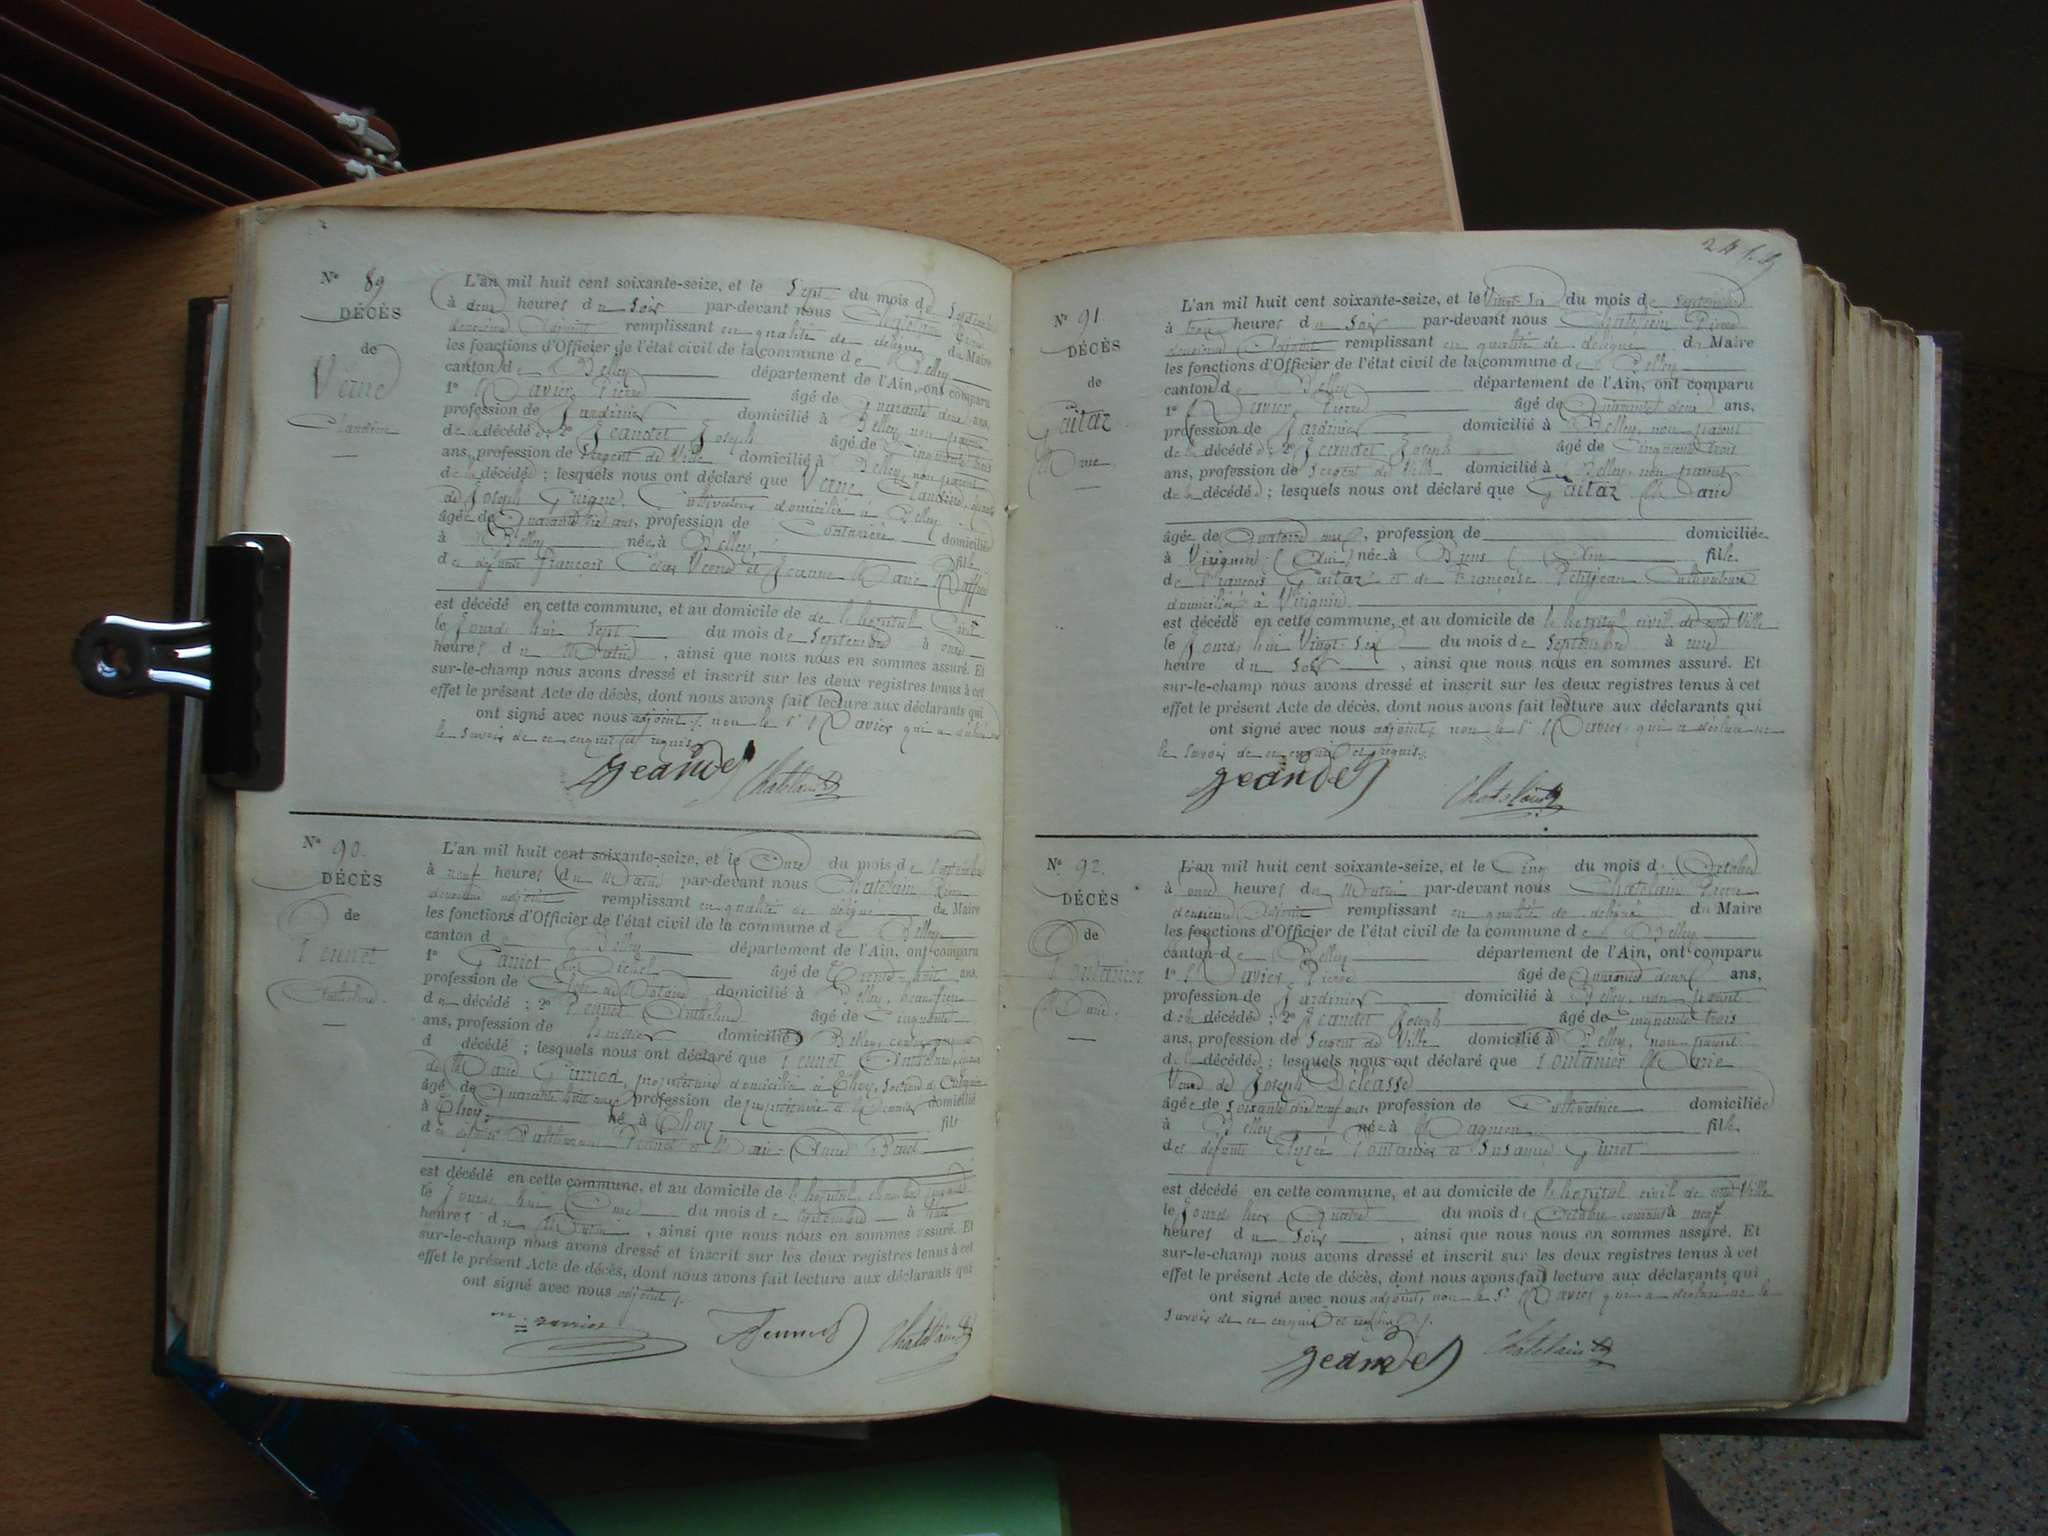 N° 89
DÉCÈS
de
Claudine
L'an mil huit cent soixante-seize, et le Sept du mois de Septembre
à deux heures du Soir par-devant nous Chatelain Pierre
deuxième Adjoint remplissant en qualité de délégué du Maire
les fonctions d'Officier de l'état civil de la commune de Belley
canton de Belley département de l'Ain, ont comparu
1° Pierre âgé de Quarante deux ans,
profession de Jardinier domicilié à Belley, non parent
de la décédée ; 2° Jeandet Joseph âgé de Cinquante trois
ans, profession de Sergent de Ville domicilié à Belley, non parent
de la décédée ; lesquels nous ont déclaré que Claudine,
de Joseph Cultivateur domicilié à Belley
âgée de Quarante ans, profession de domiciliée
à Belley née à Belley, fille
de défunts François et Jeanne Marie
est décédé en cette commune, et au domicile de de l'hôpital Civil
le Jourd'hui Sept du mois de Septembre à onze
heures du Matin, ainsi que nous nous en sommes assuré. Et
sur-le-champ nous avons dressé et inscrit sur les deux registres tenus à cet
effet le présent Acte de décès, dont nous avons fait lecture aux déclarants qui
ont signé avec nous adjoint, non le Sr qui a déclaré ne
le savoir de ce enquis et requis.
Jeandet Chatelain
N° 90.
DÉCÈS
de
Anthelme.
L'an mil huit cent soixante-seize, et le Onze du mois de Septembre
à neuf heures du Matin par-devant nous Chatelain Pierre
deuxième adjoint remplissant en qualité de délégué du Maire
les fonctions d'Officier de l'état civil de la commune de Belley
canton de Belley département de l'Ain, ont comparu
1° Michel âgé de Trente-huit ans,
profession de domicilié à Belley, beau-frère
du décédé ; 2° Anthelme âgé de Cinquante
ans, profession de domicilié à Belley, cousin germain
d décédé ; lesquels nous ont déclaré que Anthelme, époux
de Marie propriétaire domicilié à
âgé de Quarante huit ans, profession de propriétaire domicilié
à né à fils
des défunts et Marie
est décédé en cette commune, et au domicile de l'hôpital,
le Jourd'hui Onze du mois de Septembre à
heures du Matin, ainsi que nous nous en sommes assuré. Et
sur-le-champ nous avons dressé et inscrit sur les deux registres tenus à cet
effet le présent Acte de décès, dont nous avons fait lecture aux déclarants qui
ont signé avec nous adjoint.
Chatelain
N° 91.
DÉCÈS
de
Gaitaz
Marie.
L'an mil huit cent soixante-seize, et le Vingt-Six du mois de Septembre
à trois heures du Soir par-devant nous Chatelain Pierre
deuxième Adjoint remplissant en qualité de délégué du Maire
les fonctions d'Officier de l'état civil de la commune de Belley
canton de Belley département de l'Ain, ont comparu
1° Pierre âgé de Quarante deux ans,
profession de Jardinier domicilié à Belley, non parent
de la décédée ; 2° Jeandet Joseph âgé de Cinquante trois
ans, profession de Sergent de Ville domicilié à Belley, non parent
de la décédée ; lesquels nous ont déclaré que Gaitaz Marie
âgée de Quatorze ans, profession de domiciliée
à Virignin (Ain) née à Bons (Ain fille
de François Gaitaz et de Françoise Petitjean Cultivateurs
domiciliés à Virignin
est décédé en cette commune, et au domicile de l'hôpital civil de cette Ville
le Jourd'hui Vingt-Six du mois de Septembre à une
heure du Soir, ainsi que nous nous en sommes assuré. Et
sur-le-champ nous avons dressé et inscrit sur les deux registres tenus à cet
effet le présent Acte de décès, dont nous avons fait lecture aux déclarants qui
ont signé avec nous adjoint, non le Sr qui a déclaré ne
le savoir de ce enquis et requis.
Jeandet Chatelain
N° 92.
DÉCÈS
de
Fontanier
Marie.
L'an mil huit cent soixante-seize, et le Cinq du mois d'Octobre
à onze heures du Matin par-devant nous Chatelain Pierre
deuxième Adjoint remplissant en qualité de délégué du Maire
les fonctions d'Officier de l'état civil de la commune de Belley
canton de Belley département de l'Ain, ont comparu
1° Pierre âgé de Quarante deux ans,
profession de Jardinier domicilié à Belley, non parent
de la décédée ; 2° Jeandet Joseph âgé de Cinquante trois
ans, profession de Sergent de Ville domicilié à Belley, non parent
de la décédée ; lesquels nous ont déclaré que Fontanier Marie
Veuve de Joseph
âgée de Soixante dix neuf ans, profession de Cultivatrice domiciliée
à Belley née à Magnieu fille
des défunts Elysée Fontanier et Susanne
est décédé en cette commune, et au domicile de l'hôpital civil de cette Ville
le Jourd'hier Quatre du mois d'Octobre courant à neuf
heures du Soir, ainsi que nous nous en sommes assuré. Et
sur-le-champ nous avons dressé et inscrit sur les deux registres tenus à cet
effet le présent Acte de décès, dont nous avons fait lecture aux déclarants qui
ont signé avec nous adjoint, non le Sr qui a déclaré ne le
savoir de ce enquis et requis.
Jeandet Chatelain